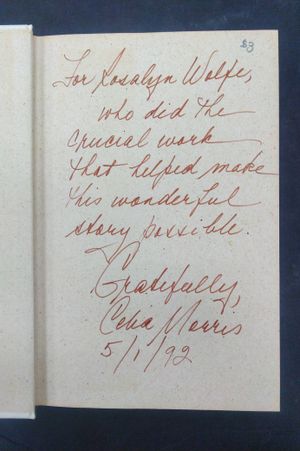 $3
For Rosalyn Wolfe,
who did the
crucial work
that helped make
this wonderful
story possible.
Gratefully,
Celia Morris
5/1/92